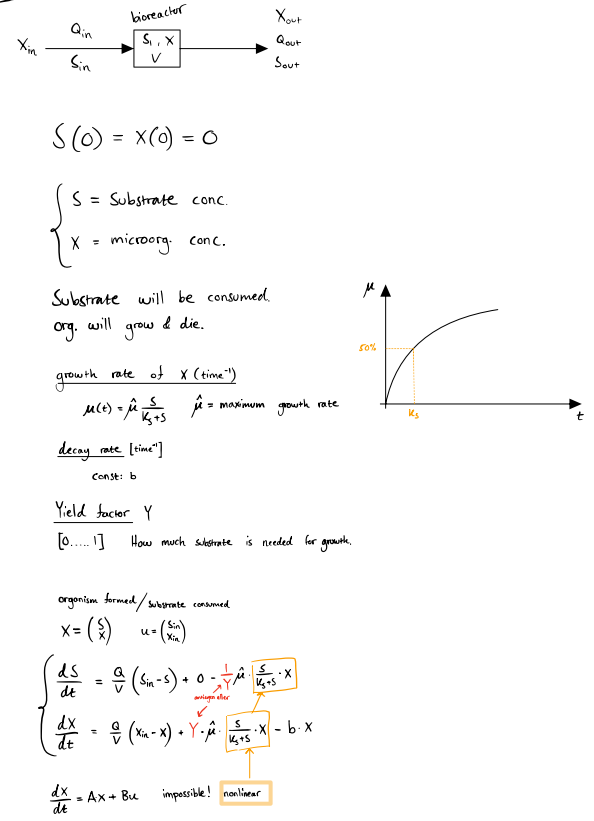 bioreactor
X_in Q_in S_in
S, X
V
X_out
Q_out
S_out
S(0) = X(0) = 0
S = Substrate conc.
X = microorg. conc.
Substrate will be consumed.
org. will grow & die.
μ
50%
K_s
t
growth rate of X (time⁻¹)
μ(t) = μ̂ S/(K_s+S) μ̂ = maximum growth rate
decay rate [time⁻¹]
const: b
Yield factor Y
[0.....1] How much substrate is needed for growth.
organism formed / substrate consumed
X = (S X) u = (S_in X_in)
dS/dt = Q/V (S_in - S) + 0 - 1/Y μ̂ · S/(K_s+S) · X
antingen eller
dX/dt = Q/V (X_in - X) + Y · μ̂ · S/(K_s+S) · X - b · X
dX/dt = AX + Bu impossible! nonlinear